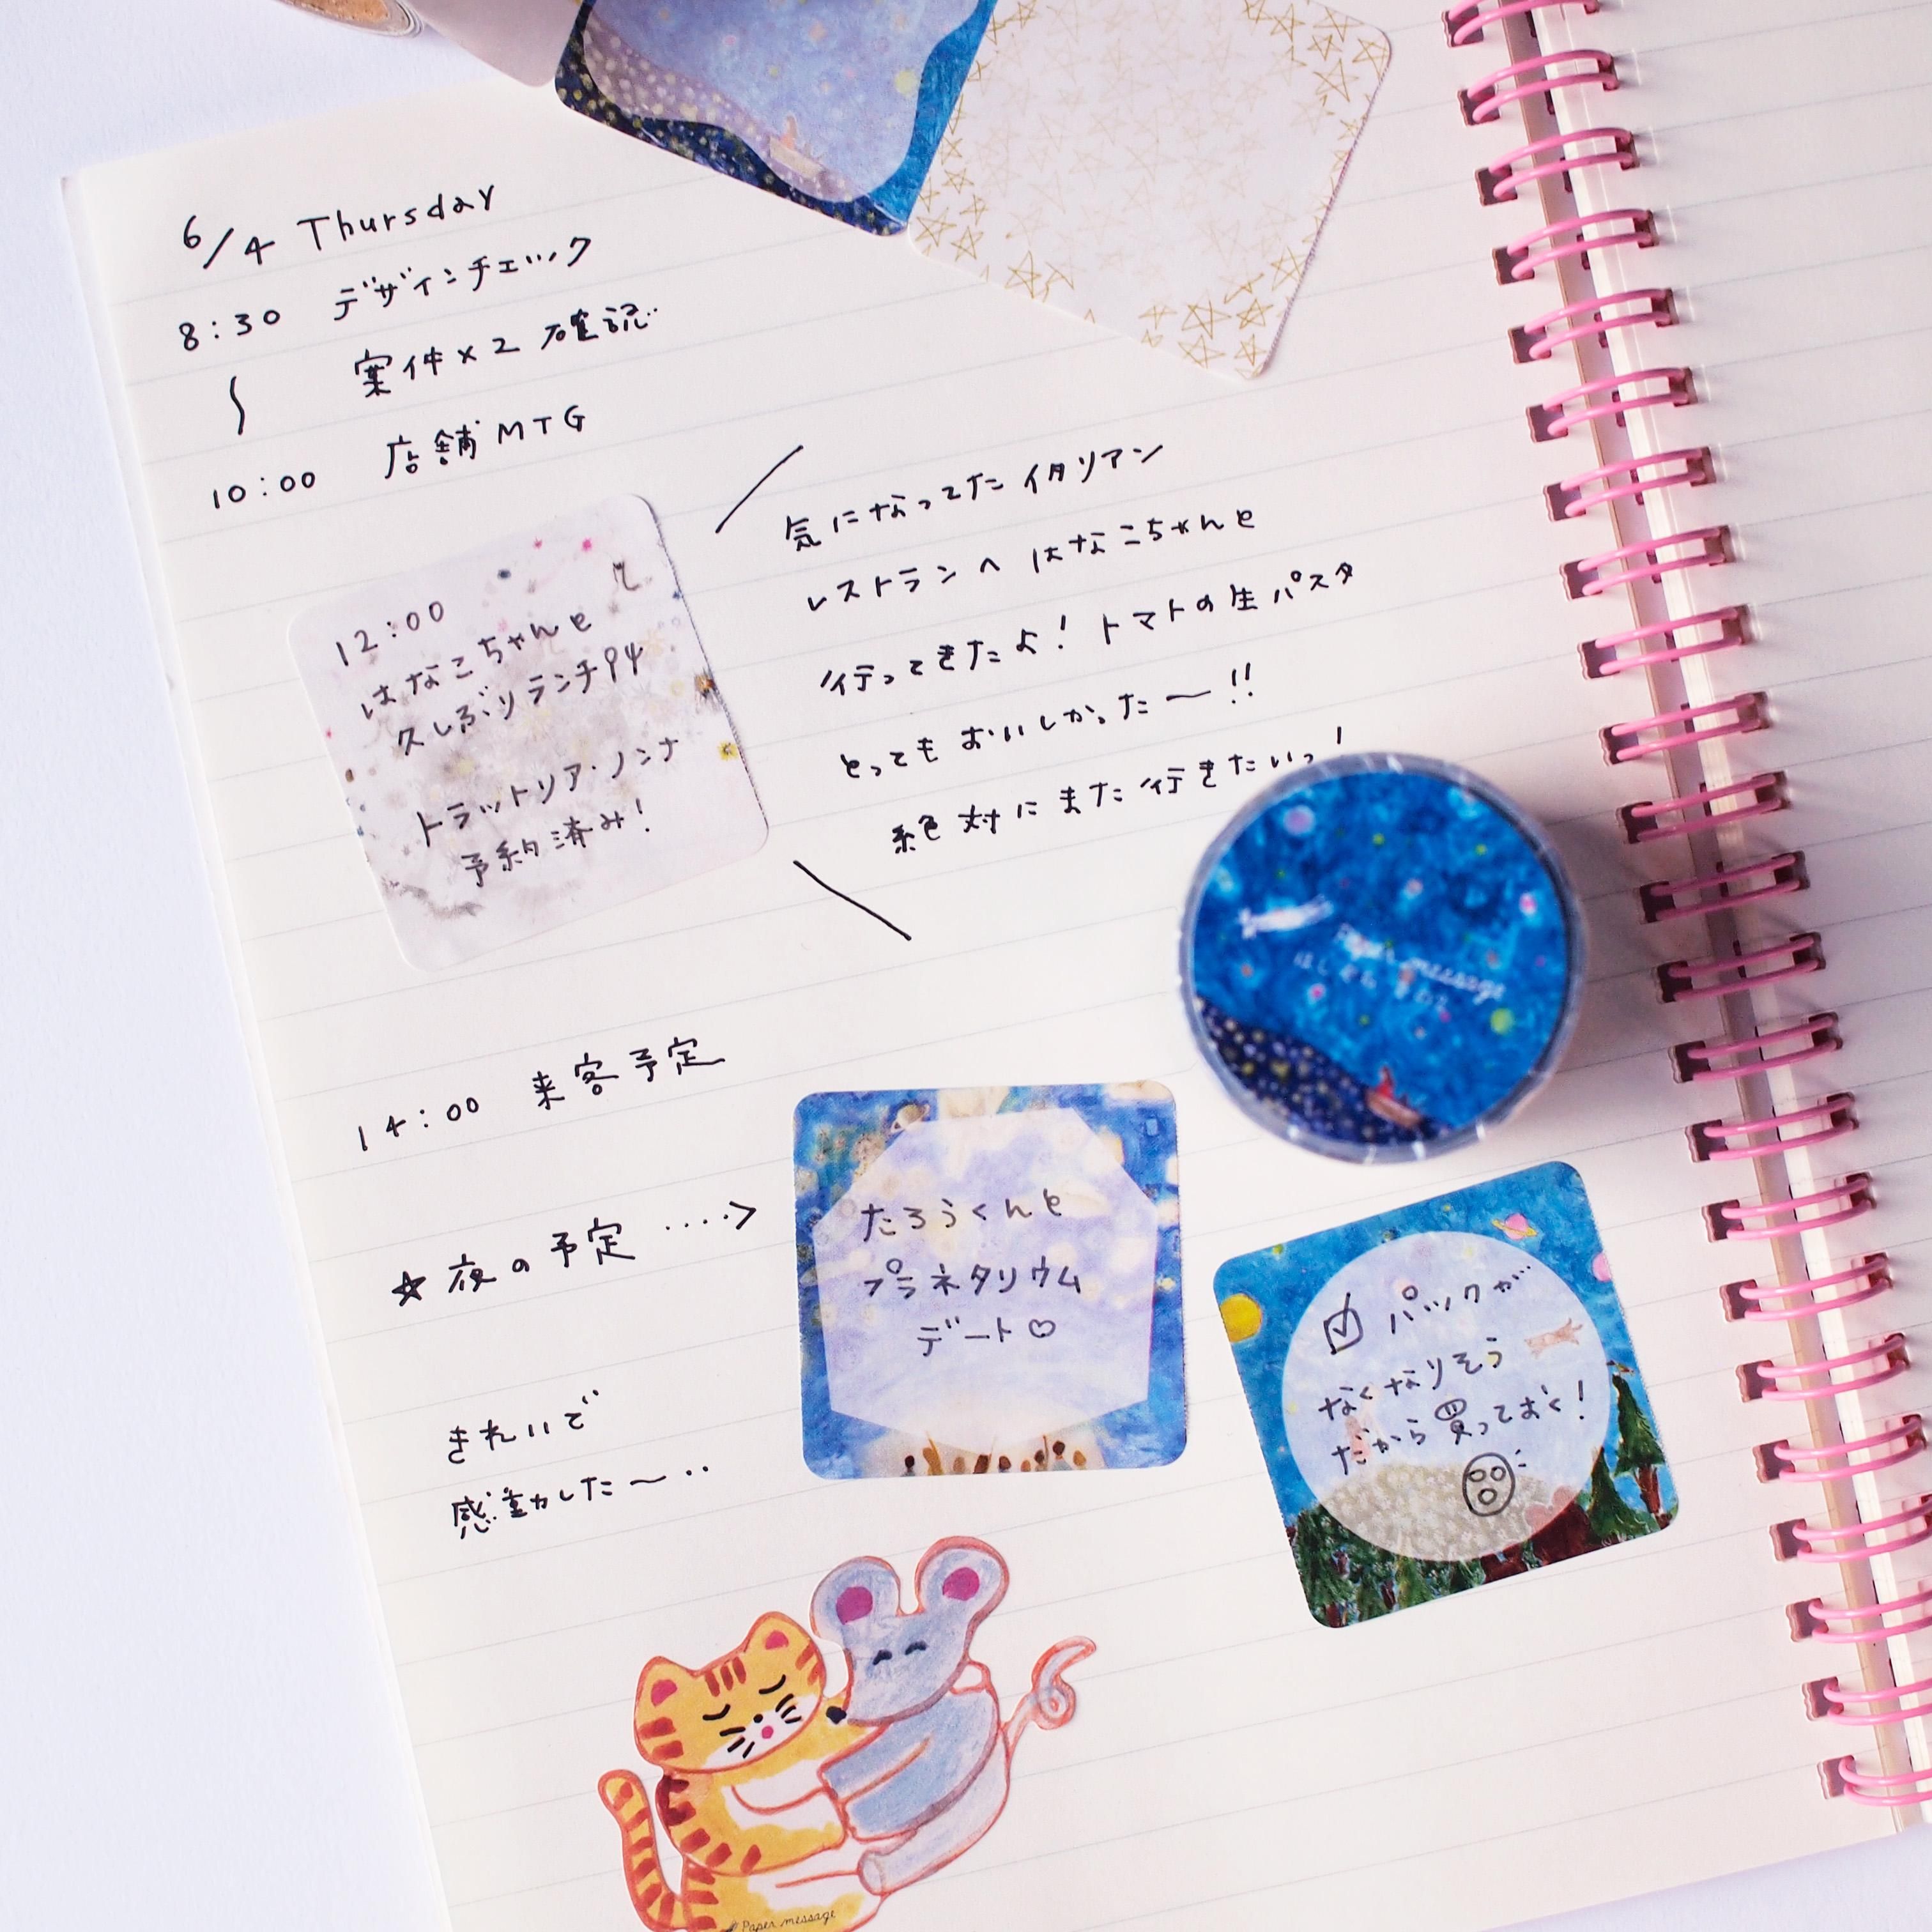 6/4 Thursday
8:30 デザインチェック
案件×2 確認
10:00 店舗MTG
12:00
はなこちゃんと
久しぶりランチ
トラットリア・ノンナ
予約済み!
気になってたイタリアン
レストランへ はなこちゃんと
行ってきたよ! トマトの生パスタ
とってもおいしかったー!!
絶対にまた行きたいっ!
Paper message
14:00 来客予定
☆夜の予定 ····>
たろうくんと
プラネタリウム
デート♡
☑ パックが
なくなりそう
だから買っておく!
きれいで
感動した〜··
Paper message